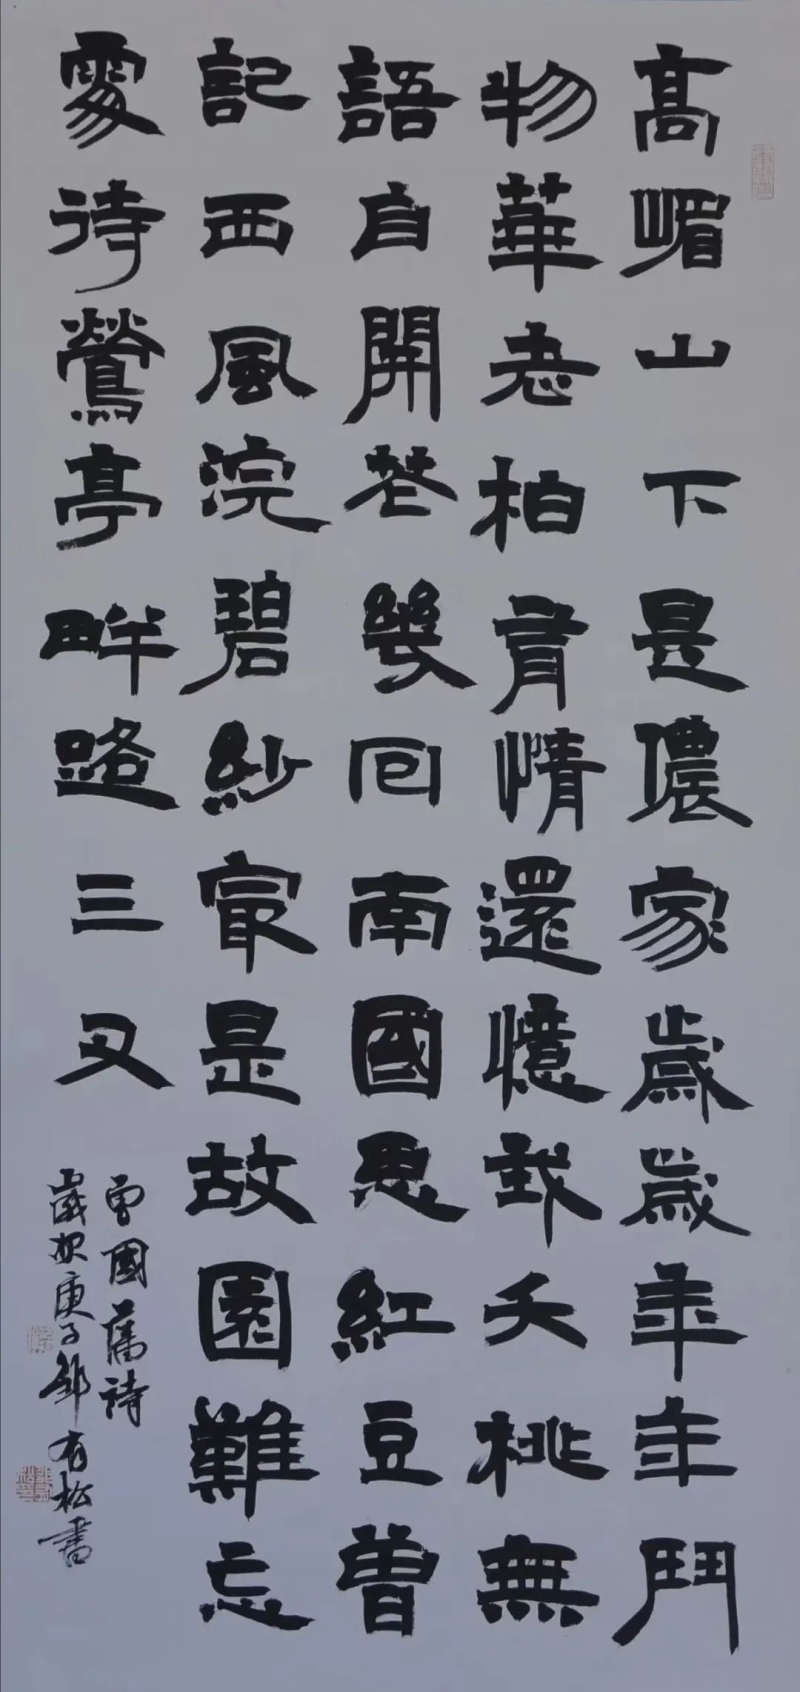 高嵋山下是儂家歲歲年年鬥
物華老柏有情還憶我夭桃無
語自開花幾回南國思紅豆曾
記西風浣碧紗最是故園難忘
處待鶯亭畔路三叉
曾國藩詩
歲次庚子鄧有松書